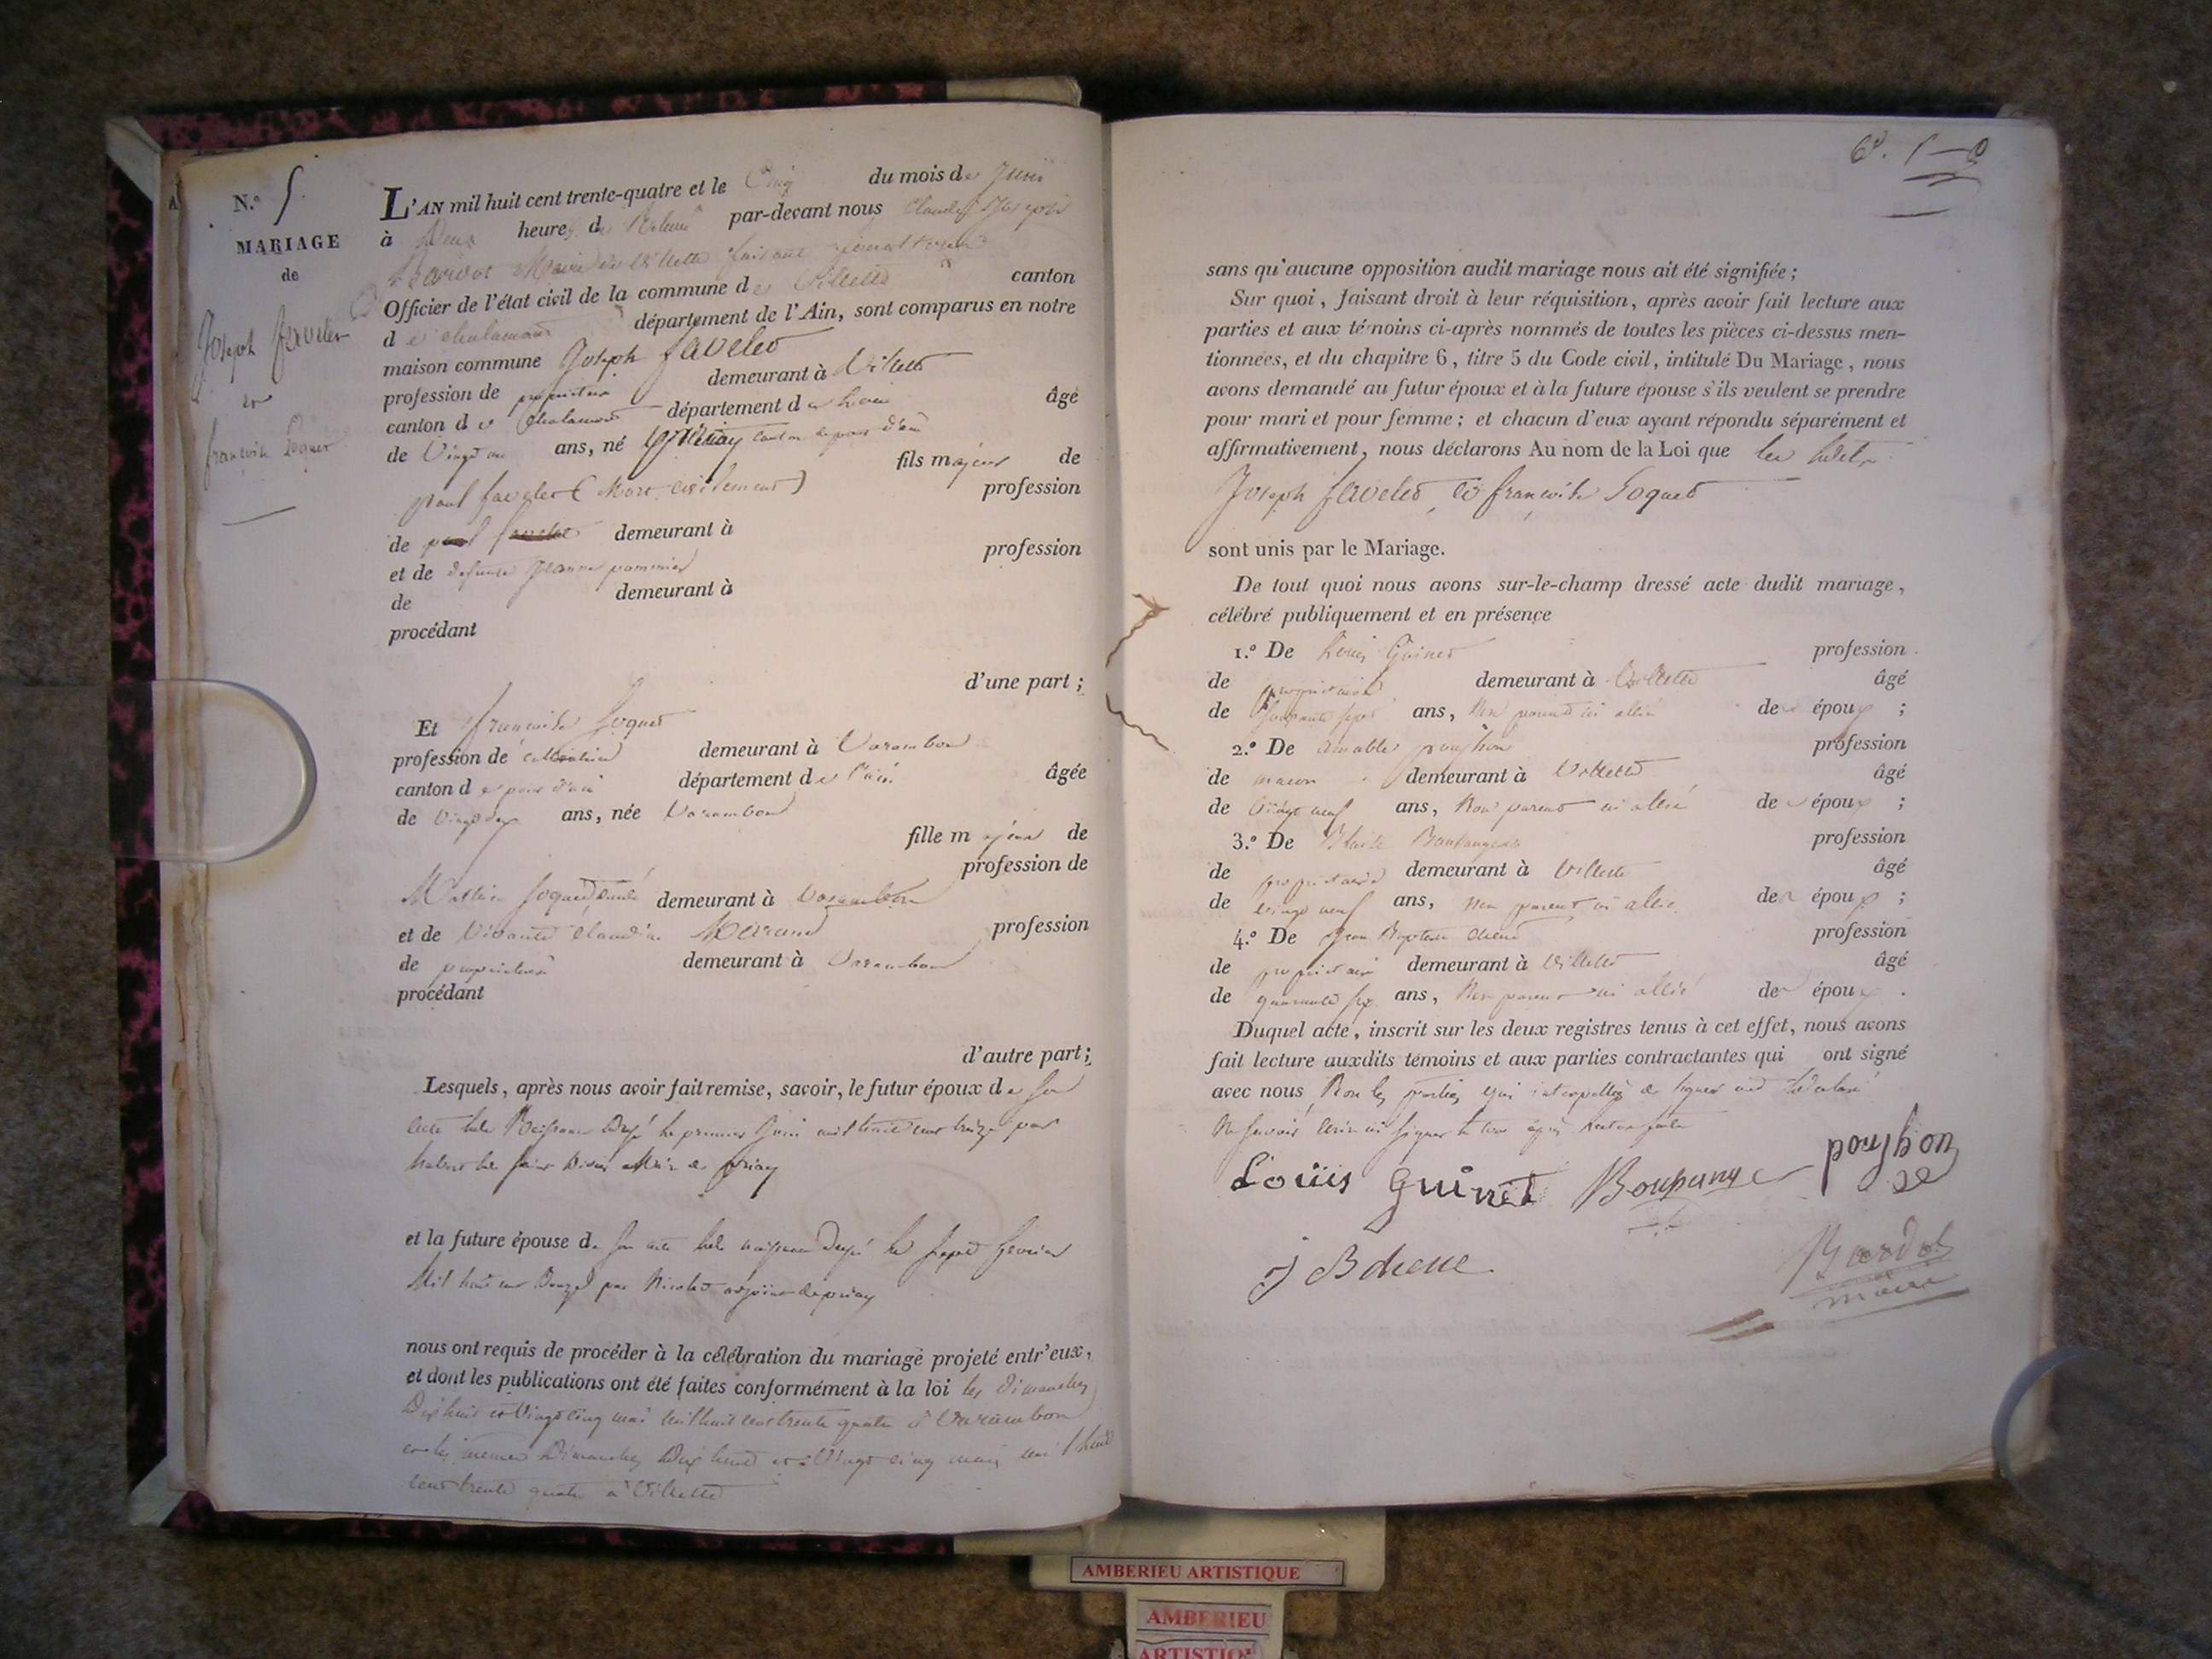 N.º 5.
MARIAGE
de
Joseph favelet
et
françoise
L'AN mil huit cent trente-quatre et le Cinq du mois de Juin
à Deux heures d par-devant nous Claude Joseph
Bardot Maire de Villette faisant
Officier de l'état civil de la commune de Villette canton
de chalamont département de l'Ain, sont comparus en notre
maison commune Joseph favelet
profession de propriétaire demeurant à Villette
canton de Chalamont département de l'ain âgé
de Vingt un ans, né à priay canton de pont d'ain
fils majeur de
paul favelet (Mort civilement) profession
de paul favelet demeurant à
et de defunte Jeanne pommier profession
de demeurant à
procédant
d'une part ;
Et françoise Joquet
profession de cultivatrice demeurant à Varambon
canton de pont d'ain département de l'ain. âgée
de vingt deux ans, née Varambon
fille majeure de
profession de
demeurant à Varambon
et de Vivante Claudine Morand profession
de propriétaire demeurant à Varambon
procédant
d'autre part ;
Lesquels, après nous avoir fait remise, savoir, le futur époux de son
acte de Naissance Dressé le premier Juin mil huit cent treize par
maire de priay
et la future épouse de son acte de naissance Dressé le sept fevrier
Mil huit cent Douze par Nicolet adjoint de priay
nous ont requis de procéder à la célébration du mariage projeté entr'eux,
et dont les publications ont été faites conformément à la loi les Dimanches
Dix huit et Vingt cinq mai mil huit cent trente quatre à Varambon
et les mêmes Dimanches Dix huit et Vingt cinq mai mil huit
cent trente quatre à Villette
sans qu'aucune opposition audit mariage nous ait été signifiée ;
Sur quoi, faisant droit à leur réquisition, après avoir fait lecture aux
parties et aux témoins ci-après nommés de toutes les pièces ci-dessus men-
tionnées, et du chapitre 6, titre 5 du Code civil, intitulé Du Mariage, nous
avons demandé au futur époux et à la future épouse s'ils veulent se prendre
pour mari et pour femme ; et chacun d'eux ayant répondu séparément et
affirmativement, nous déclarons Au nom de la Loi que les dits
Joseph favelet et françoise Joquet
sont unis par le Mariage.
De tout quoi nous avons sur-le-champ dressé acte dudit mariage,
célébré publiquement et en présence
1.º De Louis Guinet profession
de propriétaire demeurant à Villette âgé
de Soixante sept ans, Non parent ni allié des époux ;
2.º De Amable pouchon profession
de macon demeurant à Villette âgé
de Vingt neuf ans, Non parent ni allié des époux ;
3.º De profession
de propriétaire demeurant à Villette âgé
de vingt neuf ans, non parent ni allié des époux ;
4.º De Jean Baptiste chene profession
de propriétaire demeurant à Villette âgé
de quarante six ans, Non parent ni allié des époux .
Duquel acte, inscrit sur les deux registres tenus à cet effet, nous avons
fait lecture auxdits témoins et aux parties contractantes qui ont signé
avec nous Non les parties qui interpellés de signer ont déclaré
Ne savoir écrire ni signer le tout après lecture faite
Louis Guinet pouchon
J B chene
Bardot
maire
AMBERIEU ARTISTIQUE
AMBERIEU
ARTISTIQUE